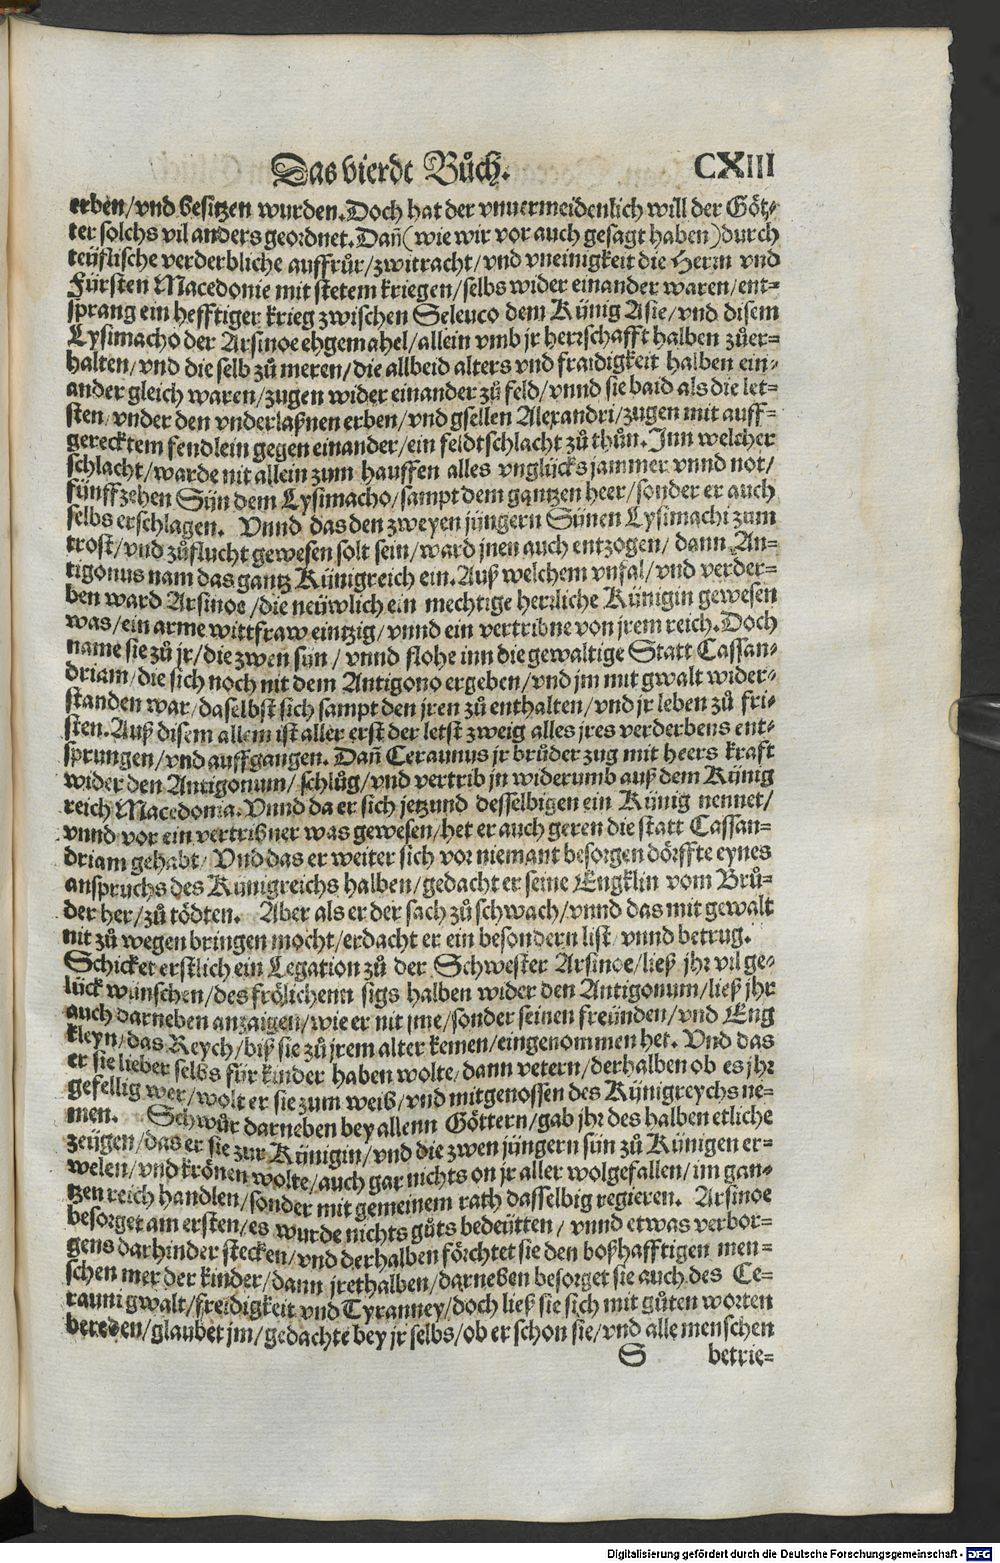 Das vierdt Bůch. CXIII
erben/vnd besitzen wurden. Doch hat der vnuermeidenlich will der Göt-
ter solchs vil anders geordnet. Dañ (wie wir vor auch gesagt haben) durch
teüflische verderbliche auffrůr/zwitracht/vnd vneinigkeit die Herrn vnd
Fürsten Macedonie mit stetem kriegen/selbs wider einander waren/ent-
sprang ein hefftiger krieg zwischen Seleuco dem Künig Asie/vnd disem
Lysimacho der Arsinoe ehgemahel/allein vmb jr herrschafft halben zůer-
halten/vnd die selb zů meren/die allbeid alters vnd fraidigkeit halben ein-
ander gleich waren/zugen wider einander zů feld/vnnd sie baid als die let-
sten/vnder den vnderlaßnen erben/vnd gsellen Alexandri/zugen mit auff-
gerecktem fendlein gegen einander/ein feldtschlacht zů thůn. Inn welcher
schlacht/warde nit allein zum hauffen alles vnglücks jammer vnnd not/
fünffzehen Sün dem Lysimacho/sampt dem gantzen heer/sonder er auch
selbs erschlagen. Vnnd das den zweyen jüngern Sünen Lysimachi zum
trost/vnd zůflucht gewesen solt sein/ward jnen auch entzogen/dann An-
tigonus nam das gantz Künigreich ein. Auß welchem vnfal/vnd verder-
ben ward Arsinoe/die neüwlich ein mechtige herrliche Künigin gewesen
was/ein arme wittfraw eintzig/vnnd ein vertribne von jrem reich. Doch
name sie zů jr/die zwen sün/vnnd flohe inn die gewaltige Statt Cassan-
driam/die sich noch nit dem Antigono ergeben/vnd jm mit gwalt wider-
standen war/daselbst sich sampt den jren zů enthalten/vnd jr leben zů fri-
sten. Auß disem allem ist aller erst der letst zweig alles jres verderbens ent-
sprungen/vnd auffgangen. Dañ Ceraunus jr brůder zug mit heers krafft
wider den Antigonum/schlůg/vnd vertrib jn widerumb auß dem Künig
reich Macedonia. Vnnd da er sich jetzund desselbigen ein Künig nennet/
vnnd vor ein vertribner was gewesen/het er auch geren die statt Cassan-
driam gehabt/Vnd das er weiter sich vor niemant besorgen dörffte eynes
anspruchs des Künigreichs halben/gedacht er seine Engklin vom Brů-
der her/zů tödten. Aber als er der sach zů schwach/vnnd das mit gewalt
nit zů wegen bringen mocht/erdacht er ein besondern list/vnnd betrug.
Schicket erstlich ein Legation zů der Schwester Arsinoe/ließ jhr vil ge-
lück wünschen/des frölichenn sigs halben wider den Antigonum/ließ jhr
auch darneben anzaigen/wie er nit jme/sonder seinen freünden/vnd Eng
kleyn/das Reych/biß sie zů jrem alter kemen/eingenommen het. Vnd das
er sie lieber selbs für kinder haben wolte/dann vetern/derhalben ob es jhr
gefellig wer/wolt er sie zum weib/vnd mitgenossen des Künigreychs ne-
men. Schwůr darneben bey allenn Göttern/gab jhr des halben etliche
zeügen/das er sie zur Künigin/vnd die zwen jüngern sün zů Künigen er-
welen/vnd krönen wolte/auch gar nichts on jr aller wolgefallen/im gan-
tzen reich handlen/sonder mit gemeinem rath dasselbig regieren. Arsinoe
besorget am ersten/es wurde nichts gůts bedeütten/vnnd etwas verbor-
gens darhinder stecken/vnd derhalben förchtet sie den boßhafftigen men-
schen mer der kinder/dann jrethalben/darneben besorget sie auch des Ce-
rauni gwalt/freidigkeit vnd Tyranney/doch ließ sie sich mit gůten worten
bereden/glaubet jm/gedachte bey jr selbs/ob er schon sie/vnd alle menschen
S betrie-
Digitalisierung gefördert durch die Deutsche Forschungsgemeinschaft - DFG